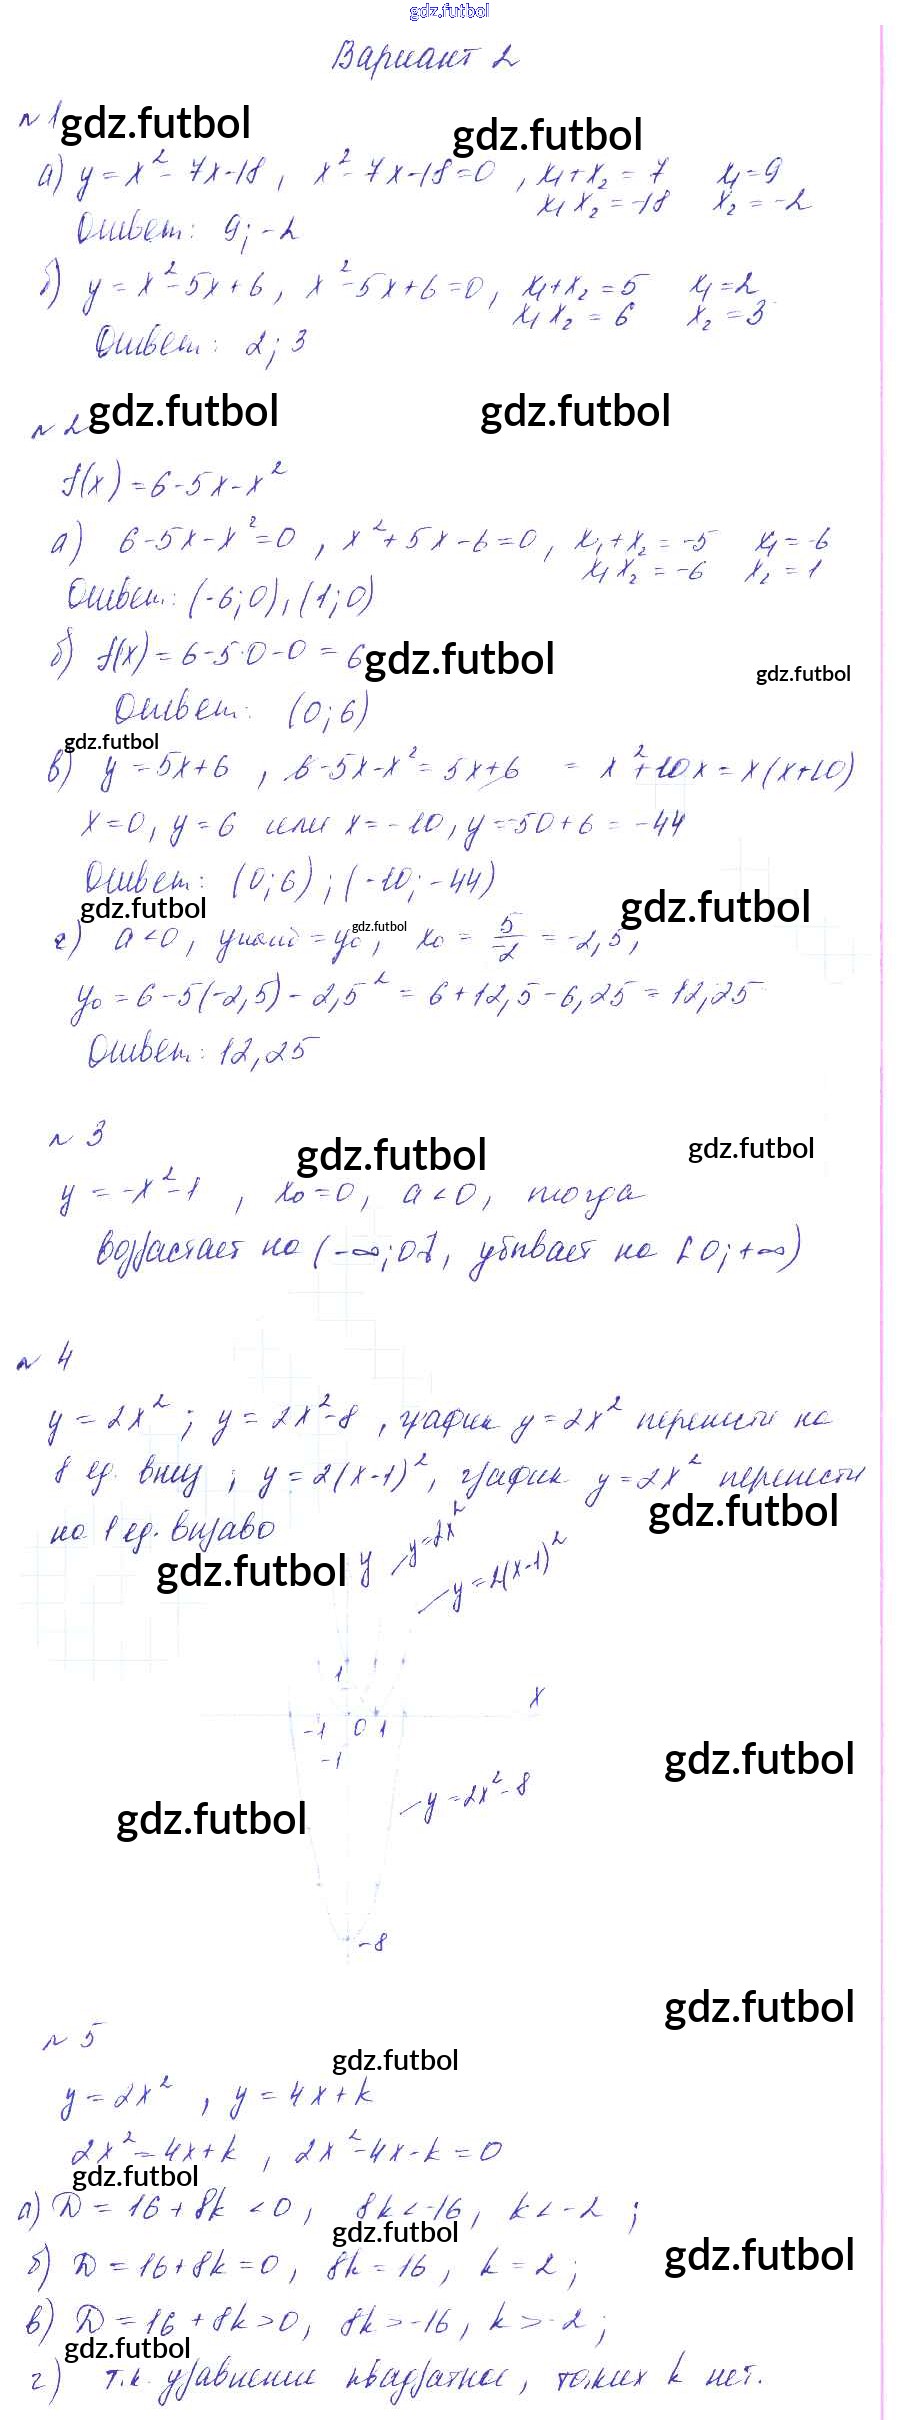 gdz.futbol
Вариант 2
№ 1 gdz.futbol gdz.futbol
а) y = x² - 7x - 18 , x² - 7x - 18 = 0 , x₁ + x₂ = 7 x₁ = 9
x₁ x₂ = -18 x₂ = -2
Ответ: 9; -2
б) y = x² - 5x + 6 , x² - 5x + 6 = 0 , x₁ + x₂ = 5 x₁ = 2
x₁ x₂ = 6 x₂ = 3
Ответ: 2; 3
№ 2 gdz.futbol gdz.futbol
f(x) = 6 - 5x - x²
а) 6 - 5x - x² = 0 , x² + 5x - 6 = 0 , x₁ + x₂ = -5 x₁ = -6
x₁ x₂ = -6 x₂ = 1
Ответ: (-6; 0), (1; 0)
б) f(x) = 6 - 5·0 - 0 = 6 gdz.futbol gdz.futbol
Ответ: (0; 6)
gdz.futbol
в) y = 5x + 6 , 6 - 5x - x² = 5x + 6 = x² + 10x = x(x + 10)
x = 0, y = 6 или x = -10, y = -50 + 6 = -44
Ответ: (0; 6); (-10; -44)
gdz.futbol gdz.futbol
г) a < 0, yнаиб = y₀, x₀ = 5/-2 = -2,5, gdz.futbol
y₀ = 6 - 5(-2,5) - 2,5² = 6 + 12,5 - 6,25 = 12,25
Ответ: 12,25
№ 3
gdz.futbol gdz.futbol
y = -x² - 1 , x₀ = 0, a < 0, тогда
возрастает на (-∞; 0], убывает на [0; +∞)
№ 4
y = 2x² ; y = 2x² - 8 , график y = 2x² перенести на
8 ед. вниз ; y = 2(x - 1)², график y = 2x² перенести
gdz.futbol
на 1 ед. вправо
gdz.futbol y y = 2x²
y = 2(x - 1)²
1
x
-1 0 1
-1
gdz.futbol
y = 2x² - 8
gdz.futbol
-8
gdz.futbol
№ 5
gdz.futbol
y = 2x² , y = 4x + k
2x² = 4x + k , 2x² - 4x - k = 0
gdz.futbol
а) D = 16 + 8k < 0, 8k < -16, k < -2 ;
gdz.futbol gdz.futbol
б) D = 16 + 8k = 0, 8k = 16, k = 2 ;
в) D = 16 + 8k > 0, 8k > -16, k > -2 ;
gdz.futbol
г) т.к. уравнение квадратное, таких k нет.